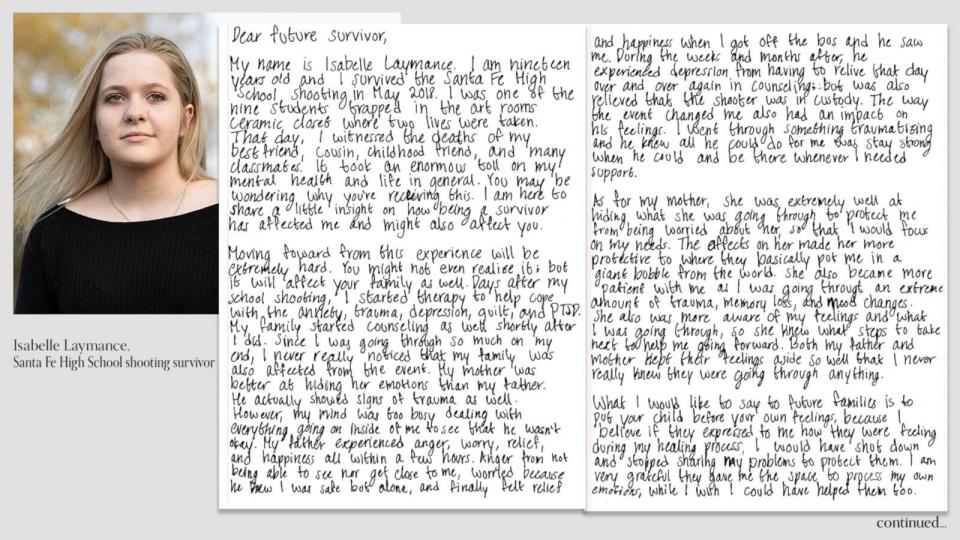 Isabelle Laymance,
Santa Fe High School shooting survivor
Dear future survivor,
My name is Isabelle Laymance. I am nineteen
years old and I survived the Santa Fe High
School shooting in May 2018. I was one of the
nine students trapped in the art rooms
Ceramic closet where two lives were taken.
That day, I witnessed the deaths of my
best friend, cousin, childhood friend, and many
classmates. It took an enormous toll on my
mental health and life in general. You may be
wondering why you're receiving this. I am here to
share a little insight on how being a survivor
has affected me and might also affect you.
Moving foward from this experience will be
extremely hard. You might not even realize it; but
it will affect your family as well. Days after my
school shooting, I started therapy to help cope
with the anxiety, trauma, depression, guilt, and PTSD.
My family started counseling as well shortly after
I did. Since I was going through so much on my
end, I never really noticed that my family was
also affected from the event. My mother was
better at hiding her emotions than my father.
He actually showed signs of trauma as well.
However, my mind was too busy dealing with
everything going on inside of me to see that he wasn't
okay. My father experienced anger, worry, relief,
and happiness all within a few hours. Anger from not
being able to see nor get close to me, worried because
he knew I was safe but alone, and finally felt relief
and happiness when I got off the bus and he saw
me. During the weeks and months after, he
experienced depression from having to relive that day
over and over again in counseling; but was also
relieved that the shooter was in custody. The way
the event changed me also had an impact on
his feelings. I went through something traumatizing
and he knew all he could do for me was stay strong
when he could and be there whenever I needed
support.
As for my mother, she was extremely well at
hiding what she was going through to protect me
from being worried about her, so that I would focus
on my needs. The effects on her made her more
protective to where they basically put me in a
giant bubble from the world. She also became more
patient with me as I was going through an extreme
amount of trauma, memory loss, and mood changes.
She also was more aware of my feelings and what
I was going through, so she knew what steps to take
next to help me going forward. Both my father and
mother kept their feelings aside so well that I never
really knew they were going through anything.
What I would like to say to future families is to
put your child before your own feelings, because I
believe if they expressed to me how they were feeling
during my healing process, I would have shut down
and stopped sharing my problems to protect them. I am
very grateful they gave me the space to process my own
emotions, while I wish I could have helped them too.
continued...